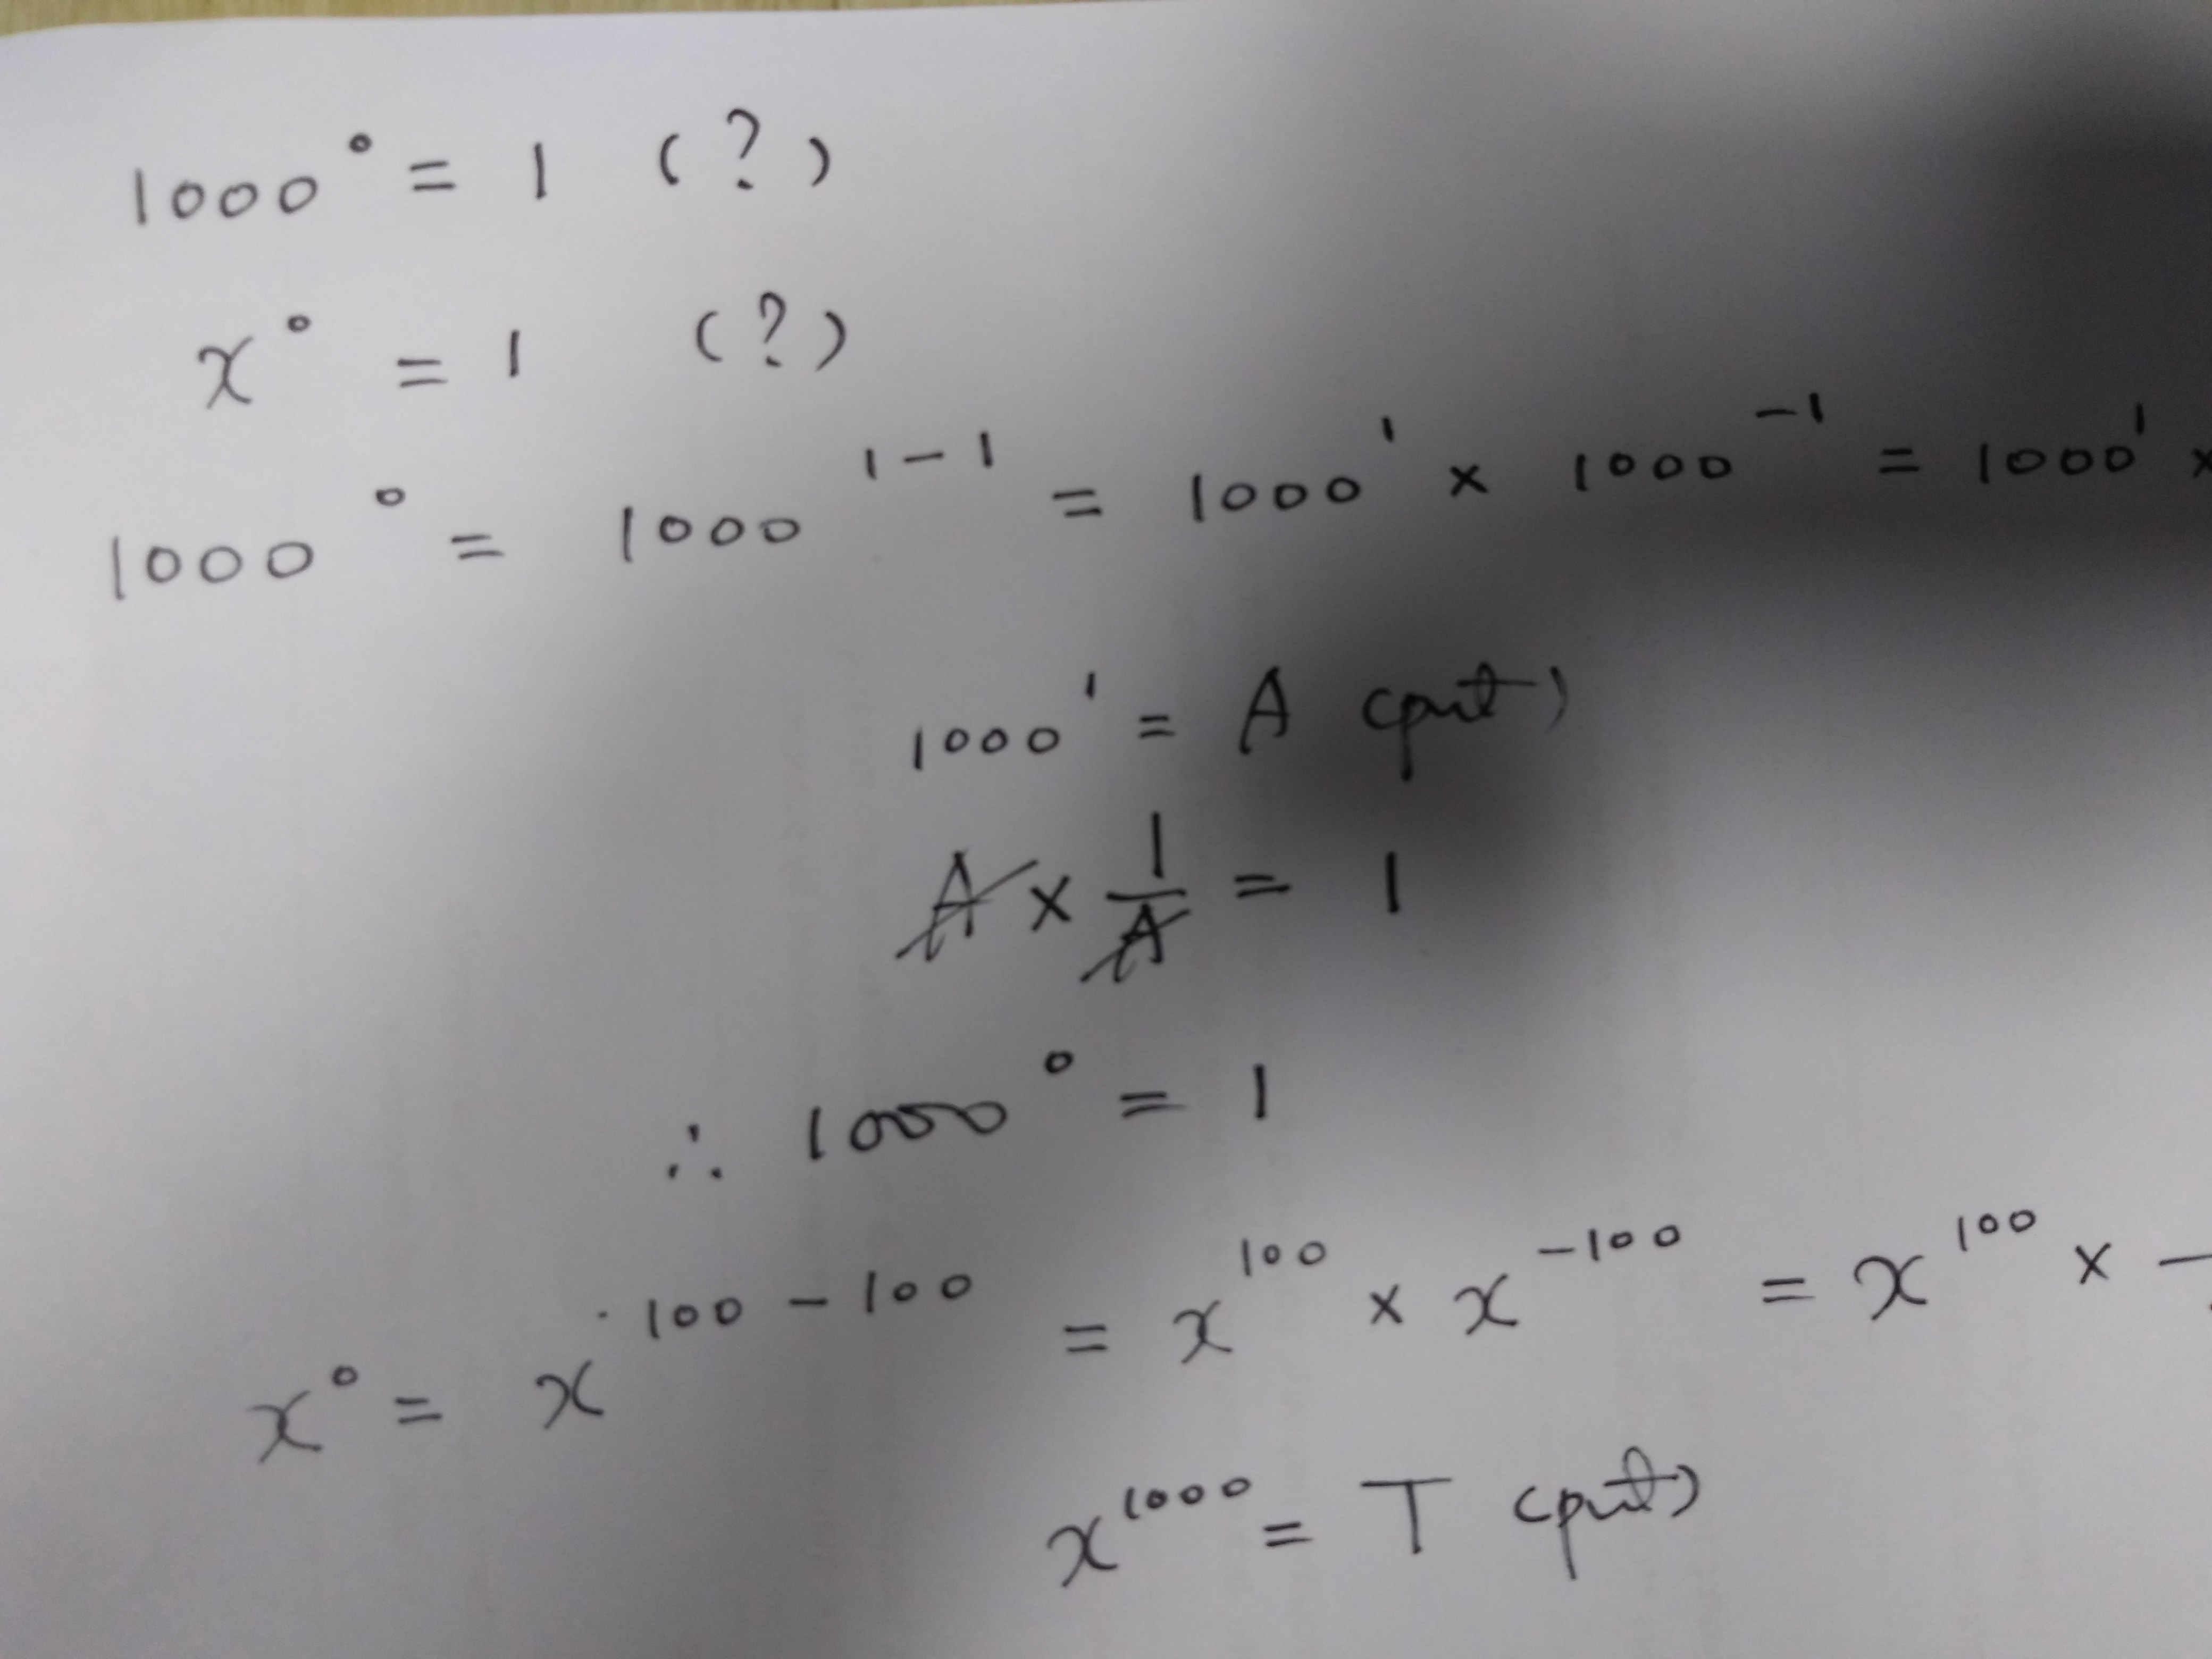 1000⁰ = 1 (?)
x⁰ = 1 (?)
1000⁰ = 1000¹⁻¹ = 1000¹ × 1000⁻¹ = 1000¹ ×
1000¹ = A (put)
A × 1/A = 1
∴ 1000⁰ = 1
x⁰ = x¹⁰⁰⁻¹⁰⁰ = x¹⁰⁰ × x⁻¹⁰⁰ = x¹⁰⁰ ×
x¹⁰⁰⁰ = T (put)